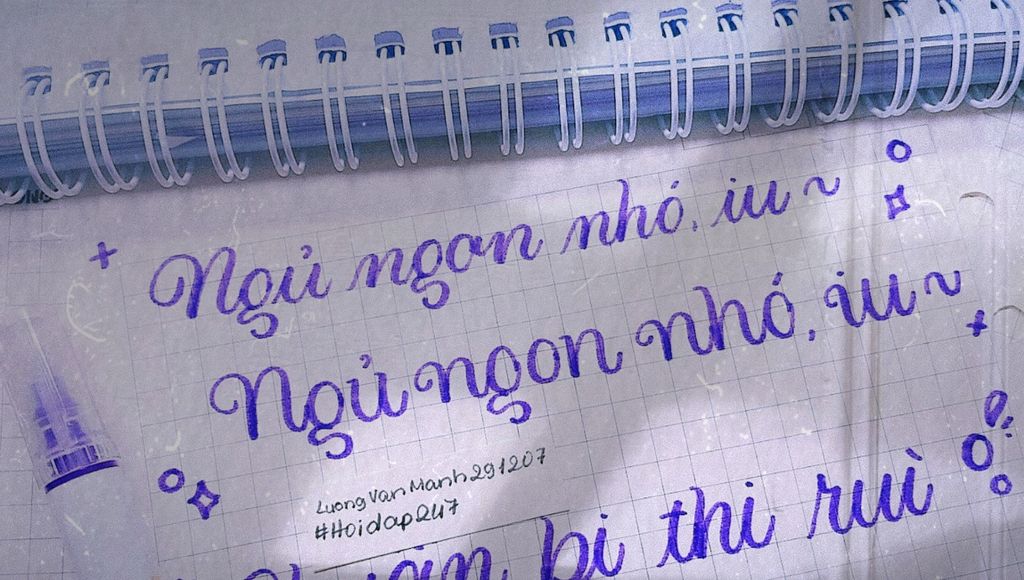 Ngủ ngon nhó, iu ~
Ngủ ngon nhó, iu ~
Luong Van Manh291207
#Hoidap247
bi thi ruì